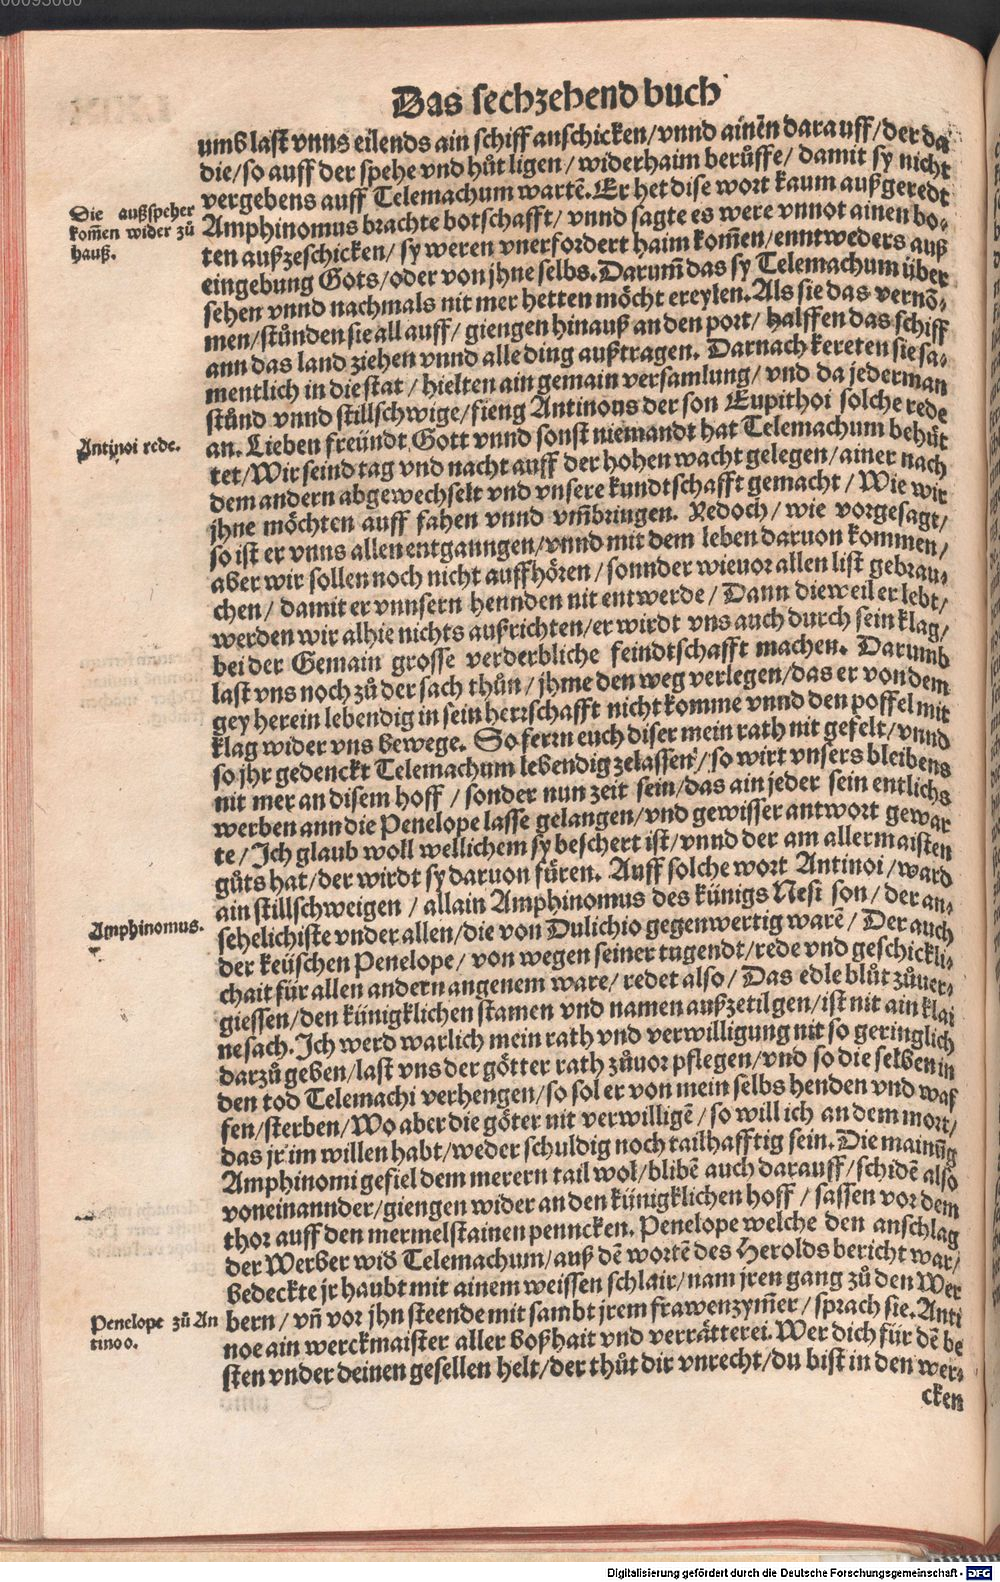 Das sechzehend buch
umb last vnns eilends ain schiff anschicken/vnnd ainēn darauff/der da
die/so auff der spehe vnd hůt ligen/widerhaim berůffe/damit sy nicht
vergebens auff Telemachum wartē. Er het dise wort kaum außgeredt
Die außspeher
kom̄en wider zů
hauß.
Amphinomus brachte botschafft/vnnd sagte es were vnnot ainen bo⸗
ten außzeschicken/sy weren vnerfordert haim kom̄en/enntweders auß
eingebung Gots/oder von jhne selbs. Darum̄ das sy Telemachum über
sehen vnnd nachmals nit mer hetten möcht ereylen. Als sie das vernō⸗
men/stůnden sie all auff/giengen hinauß an den port/halffen das schiff
ann das land ziehen vnnd alle ding außtragen. Darnach kereten sie sa⸗
mentlich in die stat/hielten ain gemain versamlung/vnd da jederman
stůnd vnnd stillschwige/fieng Antinous der son Eupithoi solche rede
Antinoi rede.
an. Lieben freündt Gott vnnd sonst niemandt hat Telemachum behůt
tet/Wir seind tag vnd nacht auff der hohen wacht gelegen/ainer nach
dem andern abgewechselt vnd vnsere kundtschafft gemacht/Wie wir
jhne möchten auff fahen vnnd vm̄bringen. Jedoch/wie vorgesagt/
so ist er vnns allen entganngen/vnnd mit dem leben daruon kommen/
aber wir sollen noch nicht auffhören/sonnder wieuor allen list gebrau⸗
chen/damit er vnnsern hennden nit entwerde/Dann dieweil er lebt/
werden wir alhie nichts außrichten/er wirdt vns auch durch sein klag/
bei der Gemain grosse verderbliche feindtschafft machen. Darumb
last vns noch zů der sach thůn/jhme den weg verlegen/das er von dem
gey herein lebendig in sein herrschafft nicht komme vnnd den poffel mit
klag wider vns bewege. So ferrn euch diser mein rath nit gefelt/vnnd
so jhr gedenckt Telemachum lebendig zelassen/so wirt vnsers bleibens
nit mer an disem hoff/sonder nun zeit sein/das ain jeder sein entlichs
werben ann die Penelope lasse gelangen/vnd gewisser antwort gewar
te/Ich glaub woll wellichem sy beschert ist/vnnd der am allermaisten
gůts hat/der wirdt sy daruon füren. Auff solche wort Antinoi/ward
ain stillschweigen/allain Amphinomus des künigs Nesi son/der an⸗
Amphinomus.
sehelichiste vnder allen/die von Dulichio gegenwertig warē/Der auch
der keüschen Penelope/von wegen seiner tugendt/rede vnd geschickli⸗
chait für allen andern angenem ware/redet also/Das edle blůt zůuer⸗
giessen/den künigklichen stamen vnd namen außzetilgen/ist nit ain klai
ne sach. Ich werd warlich mein rath vnd verwilligung nit so geringlich
darzů geben/last vns der götter rath zůuor pflegen/vnd so die selben in
den tod Telemachi verhengen/so sol er von mein selbs henden vnd waf
fen/sterben/Wo aber die göter nit verwilligē/so will ich an dem mort/
das jr im willen habt/weder schuldig noch tailhafftig sein. Die mainūg
Amphinomi gefiel dem merern tail wol/blibē auch darauff/schidē also
voneinannder/giengen wider an den künigklichen hoff/sassen vor dem
thor auff den mermelstainen penncken. Penelope welche den anschlag
der Werber wið Telemachum/auß dē wortē des Herolds bericht war/
bedeckte jr haubt mit ainem weissen schlair/nam jren gang zů den Wer
Penelope zů An
tinoo.
bern/vn̄ vor jhn steende mit sambt jrem frawenzym̄er/sprach sie. Anti
noe ain werckmaister aller boßhait vnd verrätterei. Wer dich für dē be
sten vnder deinen gesellen helt/der thůt dir vnrecht/du bist in den wer⸗
cken
Digitalisierung gefördert durch die Deutsche Forschungsgemeinschaft - DFG